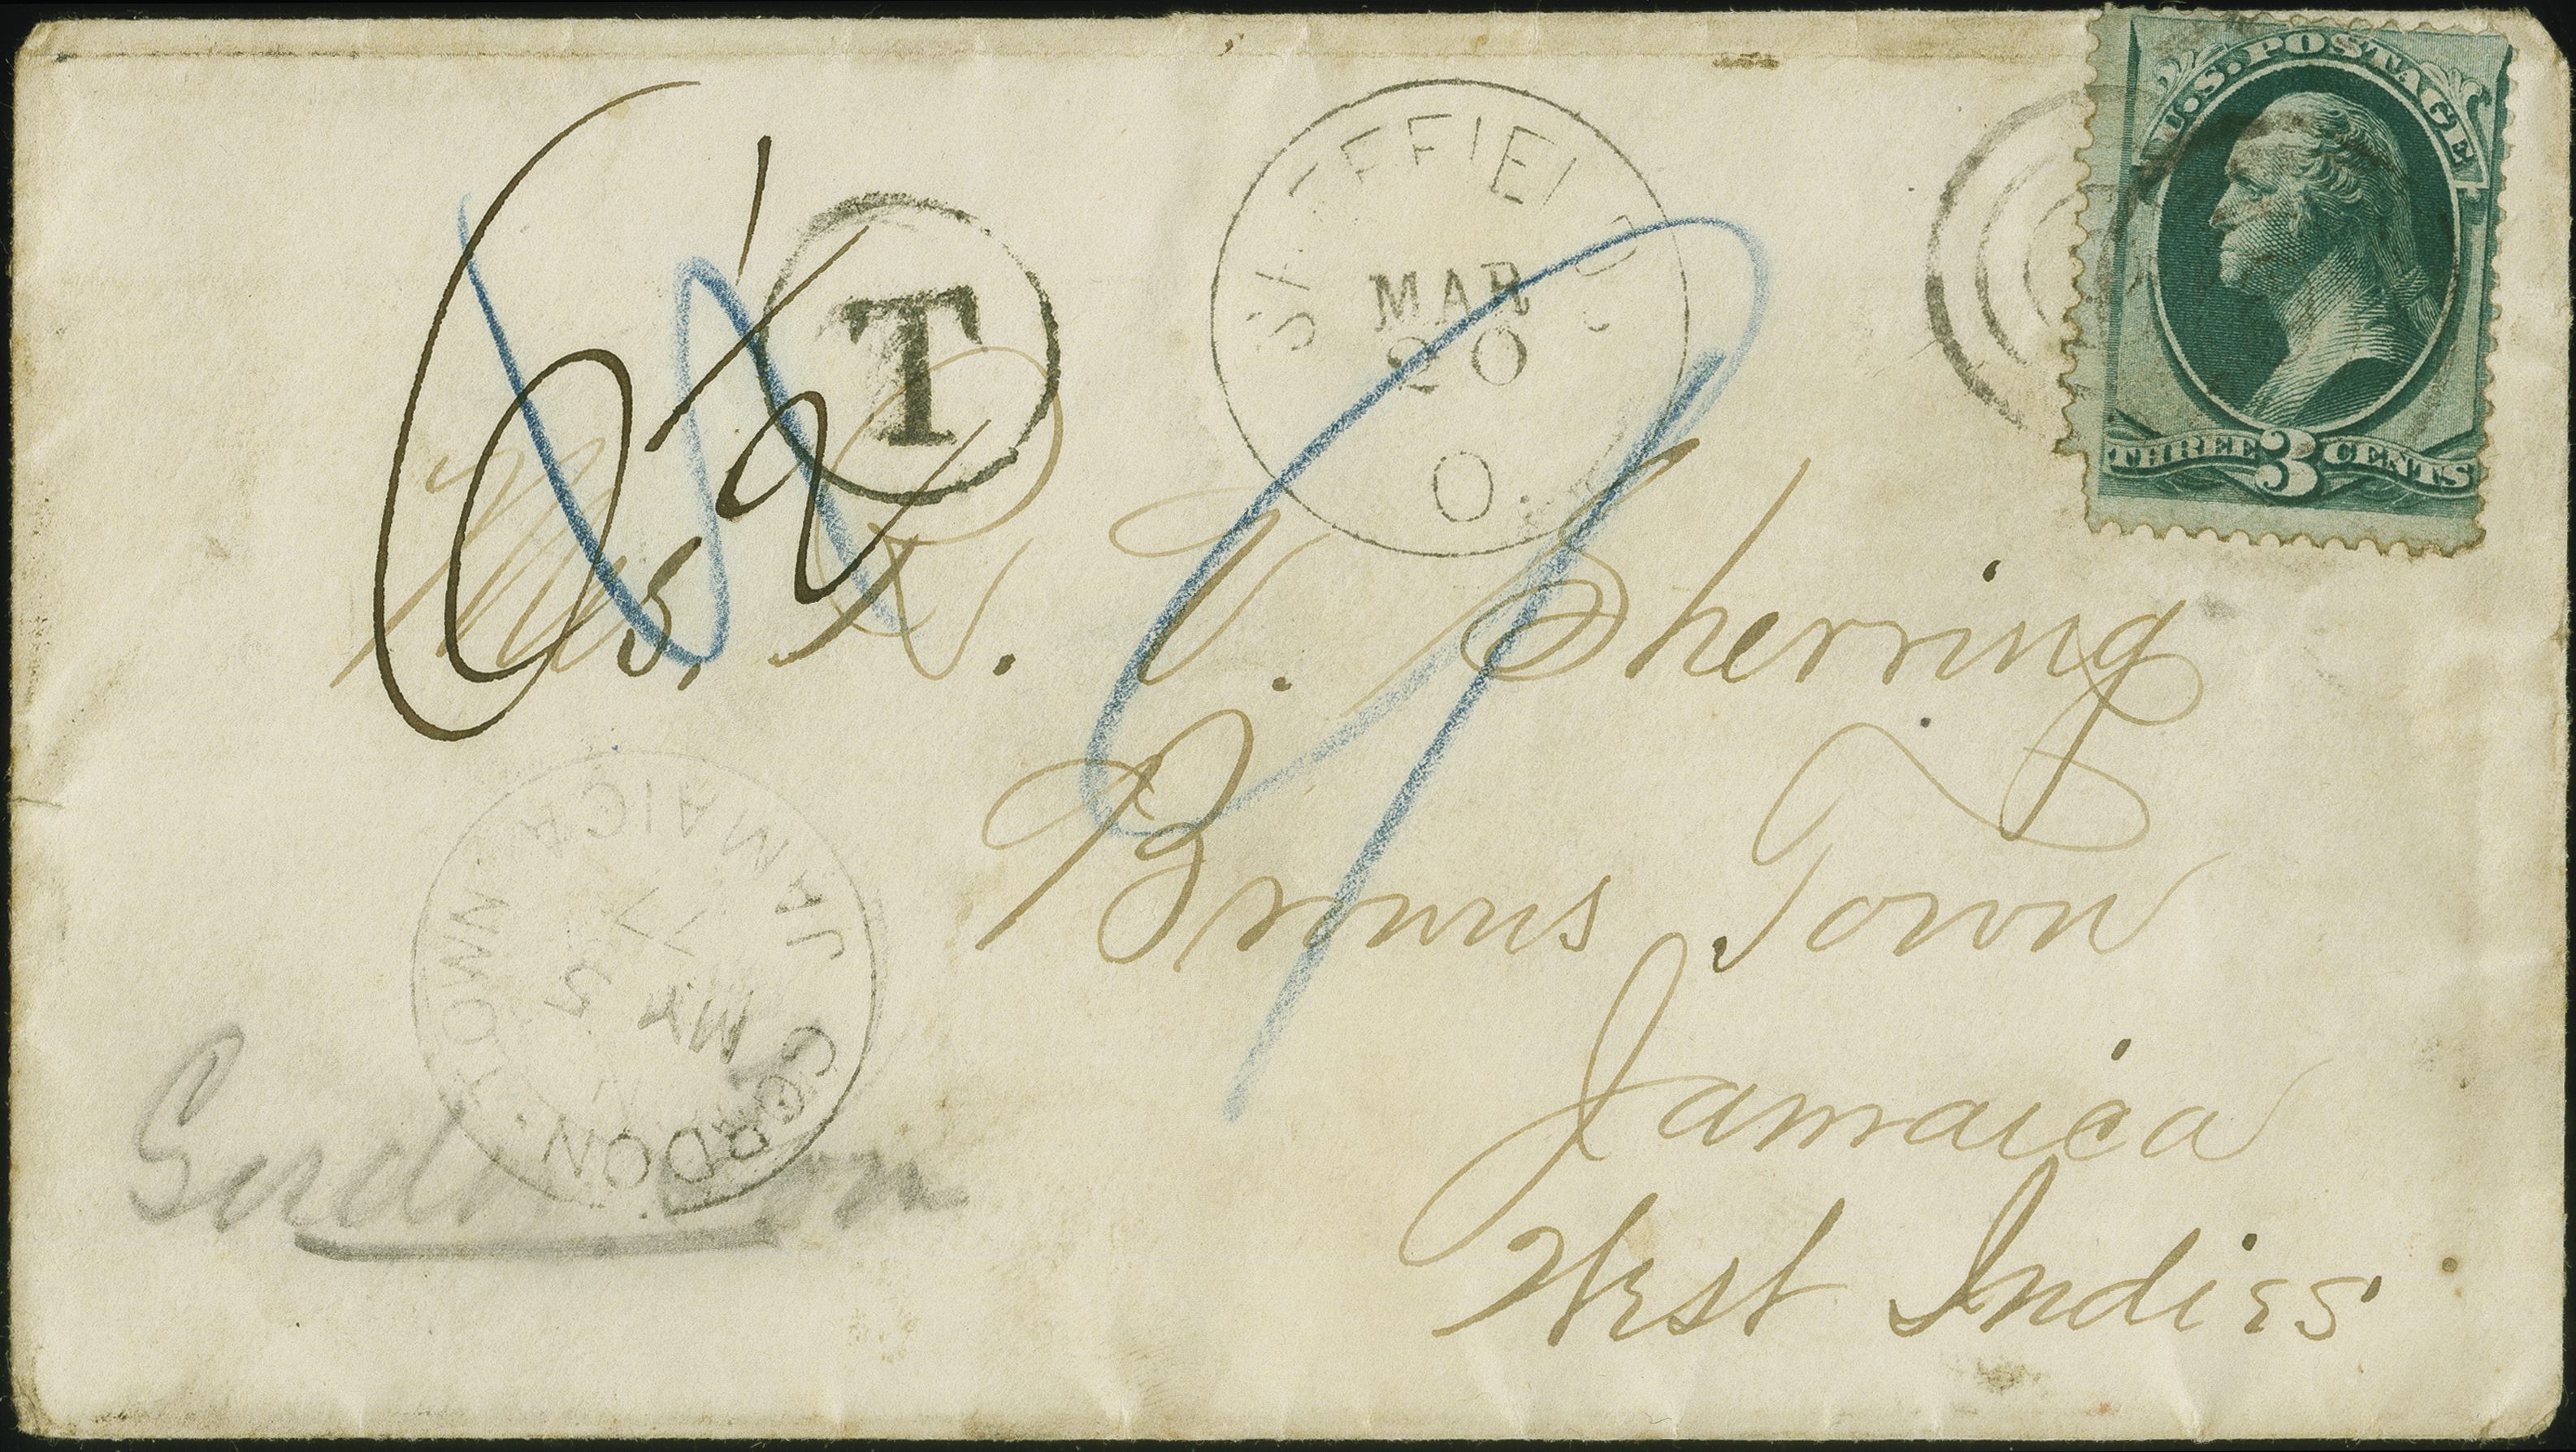 U.S. POSTAGE
THREE 3 CENTS
MAR
20
O.
T
6 1/2
Mrs. R. V. Sherring
Browns Town
Jamaica
West Indies
GORDON TOWN JAMAICA
MY
5
77